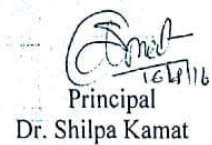 Principal
Dr. Shilpa Kamat